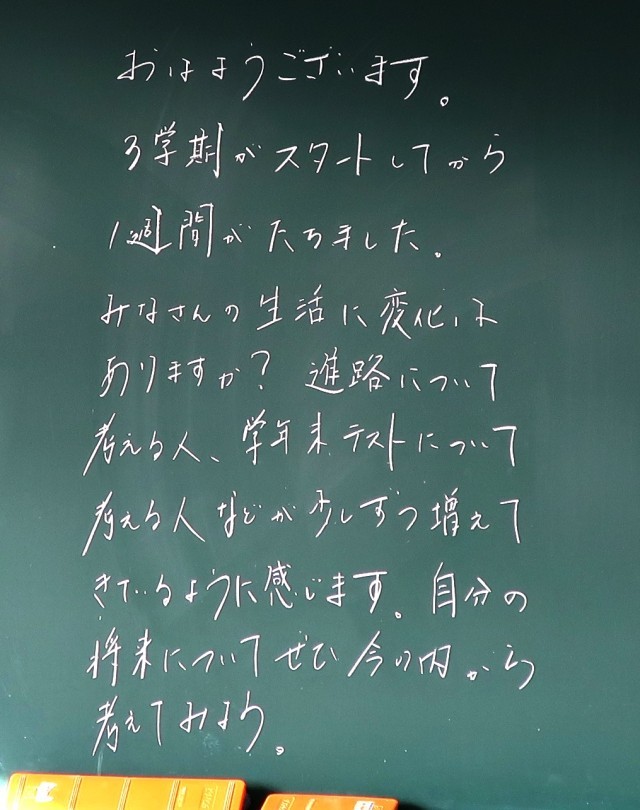 おはようございます。
3学期がスタートしてから
1週間がたちました。
みなさんの生活に変化は
ありますか？ 進路について
考える人、学年末テストについて
考える人などが少しずつ増えて
きているように感じます。自分の
将来についてぜひ今の内から
考えてみよう。